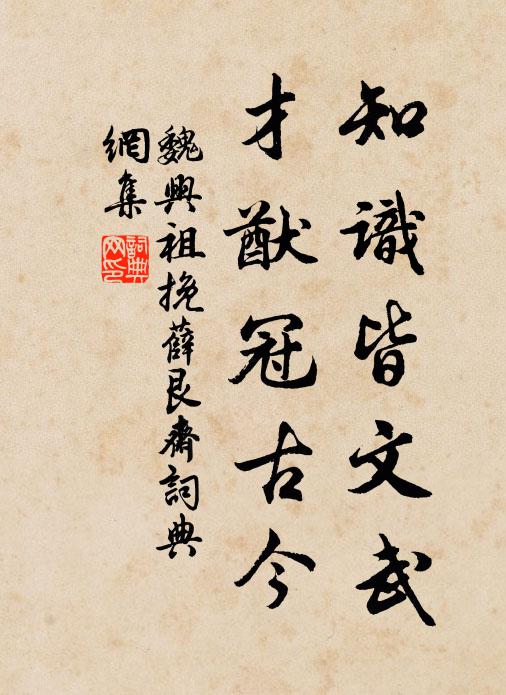 知識皆文武
才猷冠古今
魏興祖挽薛艮齋詞典
網集
詞典
網印